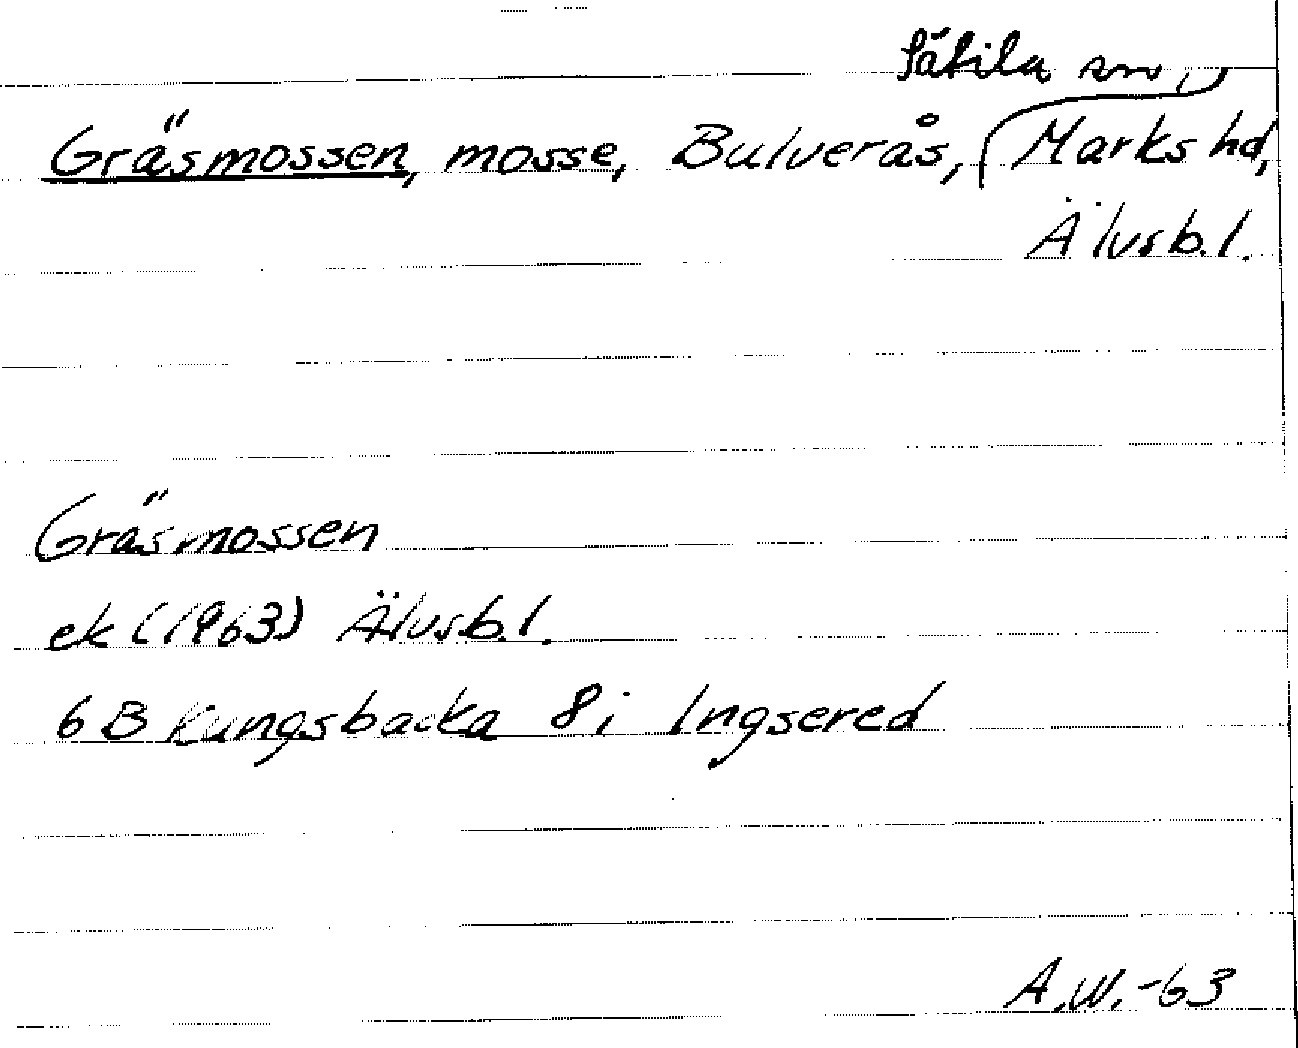 Sätila sn,
Gräsmossen, mosse, Bulverås, Marks hd,
Älvsb.l.
Gräsmossen
ek (1963) Älvsb.l.
6B Kungsbacka 8i Ingsered
A.W.-63